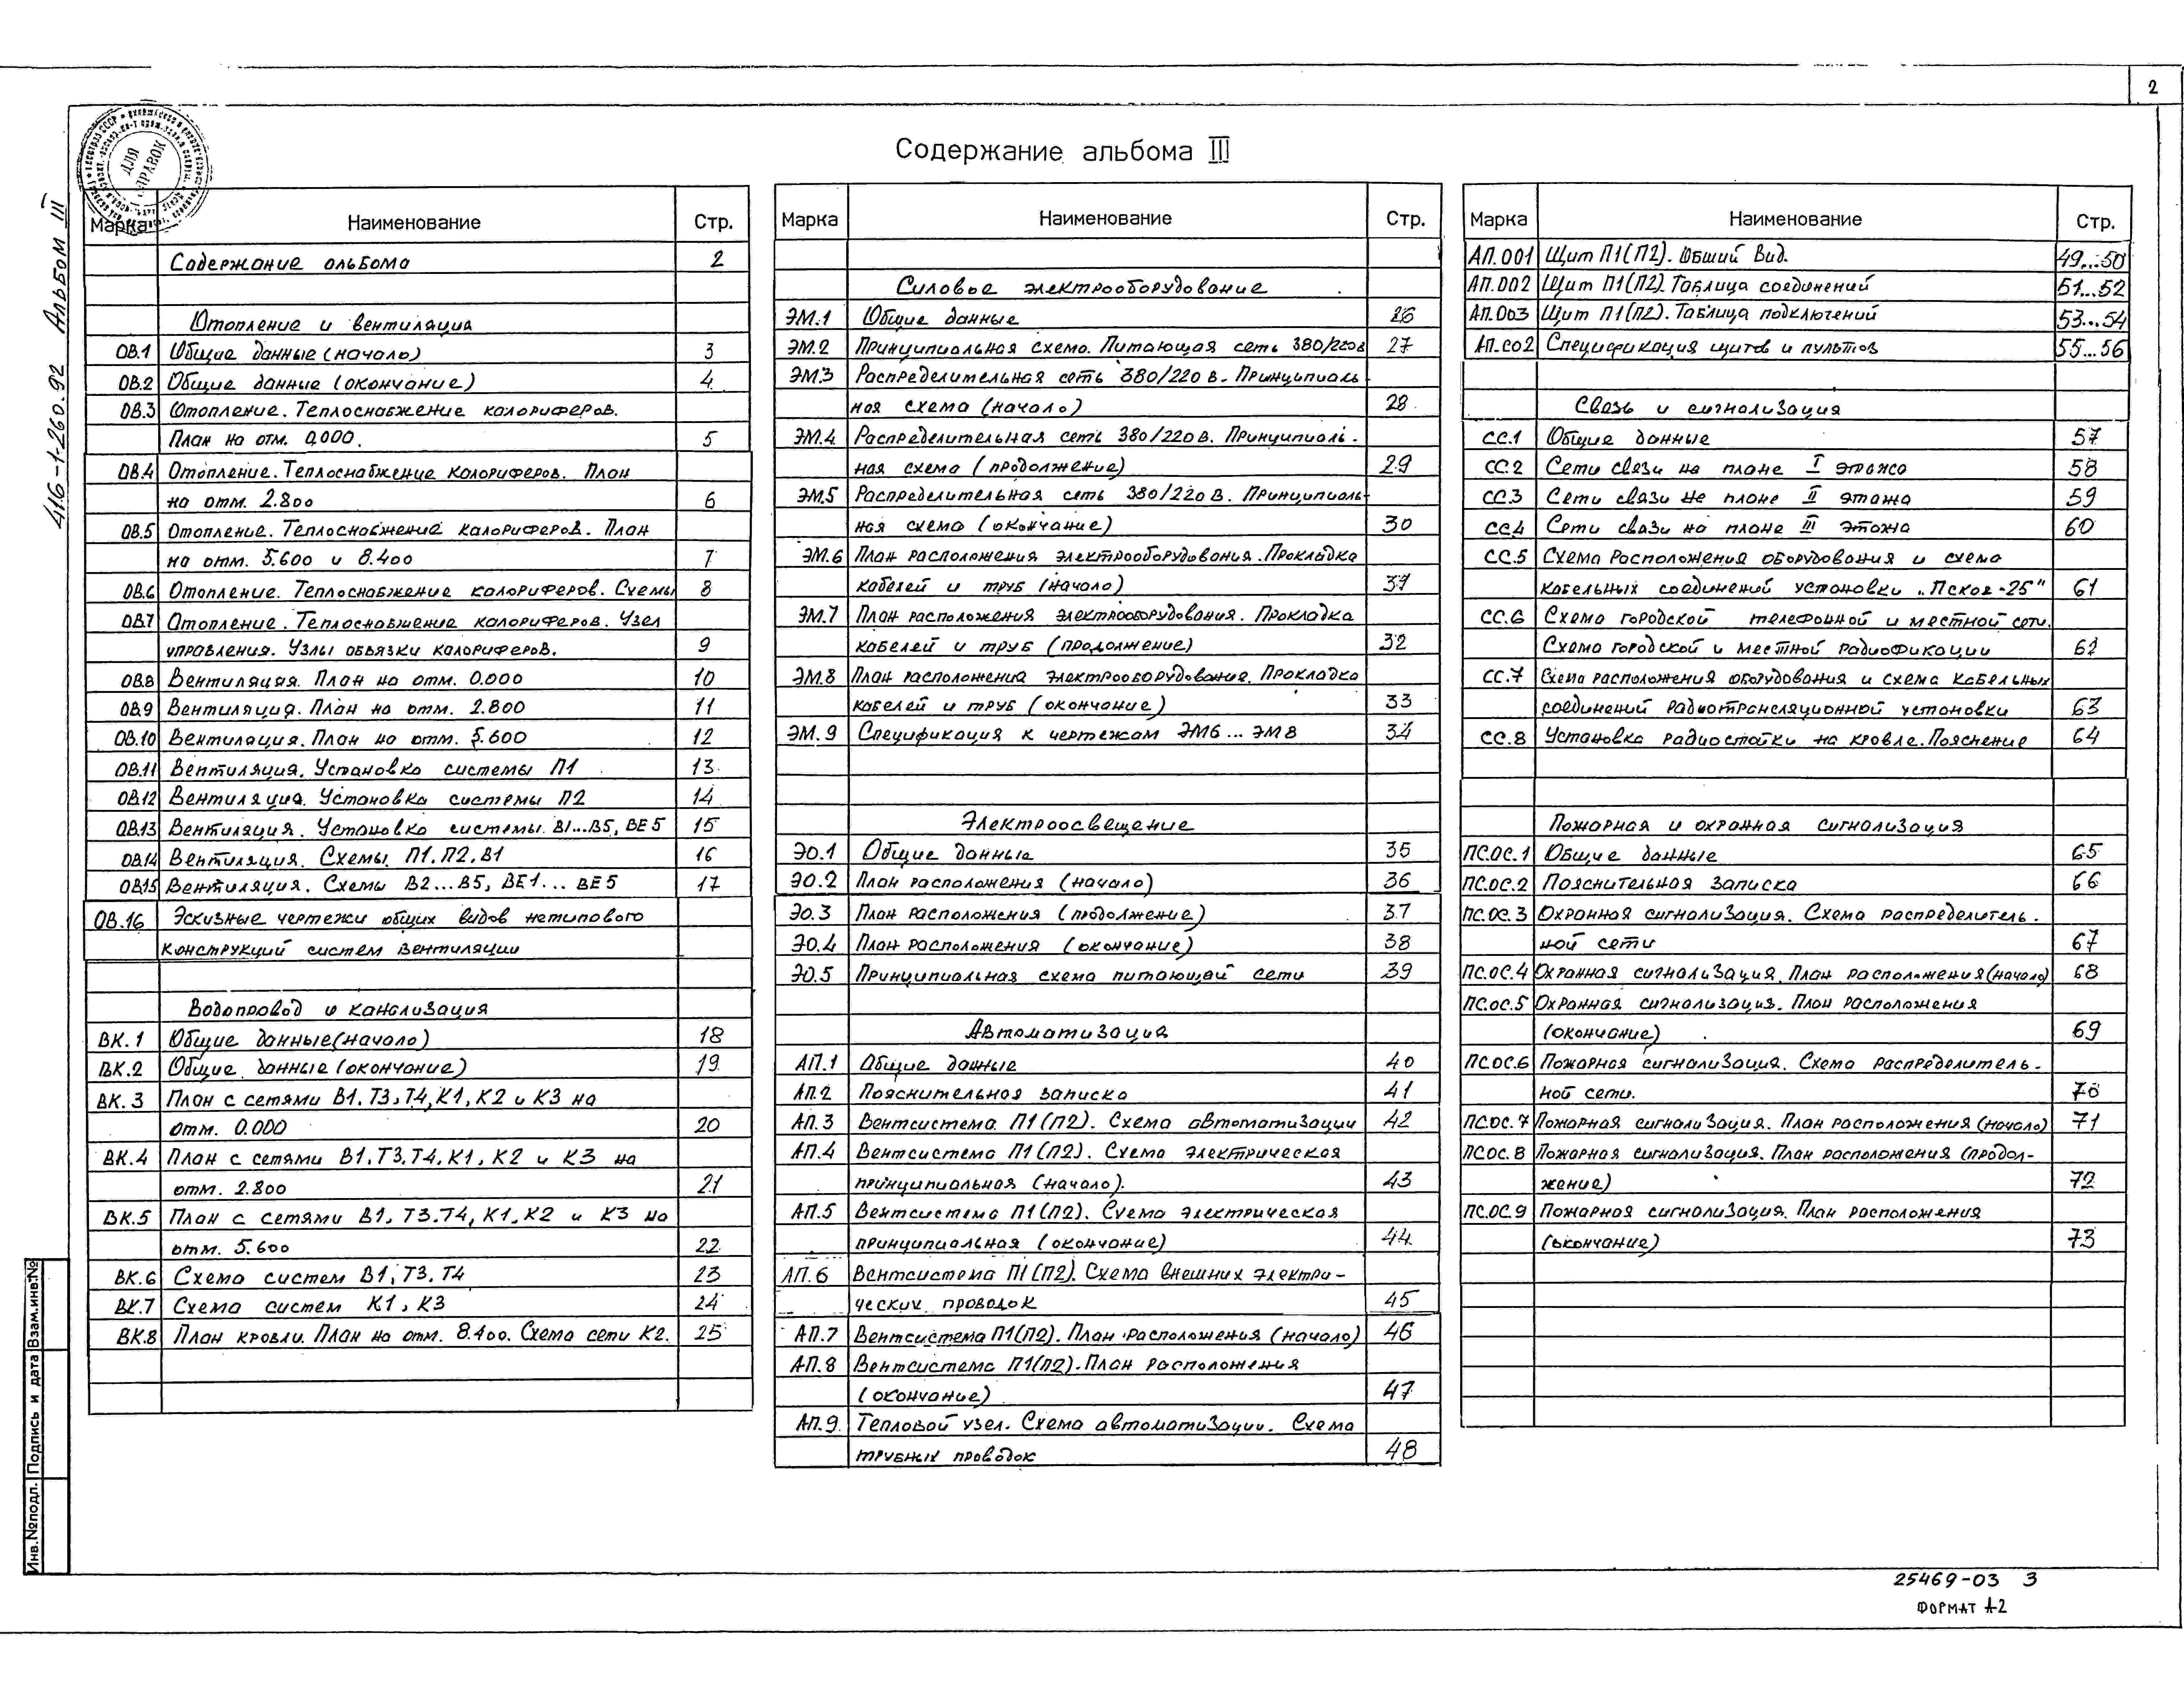 2
Содержание альбома III
416-1-260.92 Альбом III
ДЛЯ
СПРАВОК
Марка Наименование Стр.
Содержание альбома 2
Отопление и вентиляция
ОВ.1 Общие данные (начало) 3
ОВ.2 Общие данные (окончание) 4
ОВ.3 Отопление. Теплоснабжение калориферов.
План на отм. 0,000. 5
ОВ.4 Отопление. Теплоснабжение калориферов. План
на отм. 2.800 6
ОВ.5 Отопление. Теплоснабжение калориферов. План
на отм. 5.600 и 8.400 7
ОВ.6 Отопление. Теплоснабжение калориферов. Схемы 8
ОВ.7 Отопление. Теплоснабжение калориферов. Узел
управления. Узлы обвязки калориферов. 9
ОВ.8 Вентиляция. План на отм. 0.000 10
ОВ.9 Вентиляция. План на отм. 2.800 11
ОВ.10 Вентиляция. План на отм. 5.600 12
ОВ.11 Вентиляция. Установка системы П1 13
ОВ.12 Вентиляция. Установка системы П2 14
ОВ.13 Вентиляция. Установка системы В1...В5, ВЕ5 15
ОВ.14 Вентиляция. Схемы П1. П2. В1 16
ОВ.15 Вентиляция. Схемы В2...В5, ВЕ1... ВЕ5 17
ОВ.16 Эскизные чертежи общих видов нетипового
конструкций систем вентиляции
Водопровод и канализация
ВК.1 Общие данные(начало) 18
ВК.2 Общие данные (окончание) 19
ВК.3 План с сетями В1. Т3, Т4, К1, К2 и К3 на
отм. 0.000 20
ВК.4 План с сетями В1. Т3. Т4. К1, К2 и К3 на
отм. 2.800 21
ВК.5 План с сетями В1. Т3.Т4, К1. К2 и К3 на
отм. 5.600 22
ВК.6 Схема систем В1, Т3. Т4 23
ВК.7 Схема систем К1, К3 24
ВК.8 План кровли. План на отм. 8.400. Схема сети К2. 25
Марка Наименование Стр.
Силовое электрооборудование
ЭМ.1 Общие данные 26
ЭМ.2 Принципиальная схема. Питающая сеть 380/220в 27
ЭМ.3 Распределительная сеть 380/220 в. Принципиаль-
ная схема (начало) 28
ЭМ.4 Распределительная сеть 380/220 В. Принципиаль-
ная схема (продолжение) 29
ЭМ.5 Распределительная сеть 380/220 В. Принципиаль-
ная схема (окончание) 30
ЭМ.6 План расположения электрооборудования. Прокладка
кабелей и труб (начало) 31
ЭМ.7 План расположения электрооборудования. Прокладка
кабелей и труб (продолжение) 32
ЭМ.8 План расположения электрооборудование. Прокладка
кабелей и труб (окончание) 33
ЭМ.9 Спецификация к чертежам ЭМ6... ЭМ8 34
Электроосвещение
ЭО.1 Общие данные 35
ЭО.2 План расположения (начало) 36
ЭО.3 План расположения (продолжение) 37
ЭО.4 План расположения (окончание) 38
ЭО.5 Принципиальная схема питающей сети 39
Автоматизация
АП.1 Общие данные 40
АП.2 Пояснительная записка 41
АП.3 Вентсистема П1(П2). Схема автоматизации 42
АП.4 Вентсистема П1(П2). Схема электрическая
принципиальная (начало). 43
АП.5 Вентсистема П1(П2). Схема электрическая
принципиальная (окончание) 44
АП.6 Вентсистема П1(П2). Схема внешних электри-
ческих проводок 45
АП.7 Вентсистема П1(П2). План расположения (начало) 46
АП.8 Вентсистема П1(П2). План расположения
(окончание) 47
АП.9 Тепловой узел. Схема автоматизации. Схема
трубных проводок 48
Марка Наименование Стр.
АП.001 Щит П1(П2). Общий вид. 49...50
АП.002 Щит П1(П2). Таблица соединений 51...52
АП.003 Щит П1(П2). Таблица подключений 53...54
АП.С02 Спецификация щитов и пультов 55...56
Связь и сигнализация
СС.1 Общие данные 57
СС.2 Сети связи на плане I этажа 58
СС.3 Сети связи не плане II этажа 59
СС.4 Сети связи на плане III этажа 60
СС.5 Схема расположения оборудования и схема
кабельных соединений установки „Псков-25" 61
СС.6 Схема городской телефонной и местной сети.
Схема городской и местной радиофикации 62
СС.7 Схема расположения оборудования и схема кабельных
соединений радиотрансляционной установки 63
СС.8 Установка радиостойки на кровле. Пояснение 64
Пожарная и охранная сигнализация
ПС.ОС.1 Общие данные 65
ПС.ОС.2 Пояснительная записка 66
ПС.ОС.3 Охранная сигнализация. Схема распределитель-
ной сети 67
ПС.ОС.4 Охранная сигнализация. План расположения(начало) 68
ПС.ОС.5 Охранная сигнализация. План расположения
(окончание) 69
ПС.ОС.6 Пожарная сигнализация. Схема распределитель-
ной сети. 70
ПС.ОС.7 Пожарная сигнализация. План расположения (начало) 71
ПС.ОС.8 Пожарная сигнализация. План расположения (продол-
жение) 72
ПС.ОС.9 Пожарная сигнализация. План расположения
(окончание) 73
Инв.№подл. Подпись и дата Взам.инв.№
25469-03 3
Формат А-2